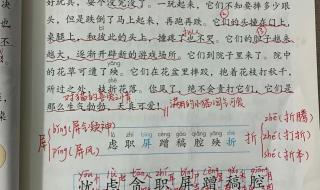 好玩具，耍个没完没了。一玩起来，它们不知要摔多少跟
头，但是跌倒了马上起来，再跑再跌。它们的头撞在门上，
桌腿上，和彼此的头上，撞疼了也不哭。它们的胆子越来
越大，逐渐开辟新的游戏场所。它们到院子里来了。院中
的花草可遭了殃。它们在花盆里摔跤，抱着花枝打秋千，
所过之处，枝折花落。你见了，绝不会责打它们，它们是
那么生气勃勃，天真可爱！
满月的小猫淘气可爱
屏
bǐng(屏气凝神)
píng(屏风)
lǜ zhí bǐng cèng gǎo qiāng yāng zhé
虑 职 屏 蹭 稿 腔 殃 折
折
zhē(折腾)
zhé(打折)
shé(折本)
忧 虑 贪 职 屏 蹭 稿 腔